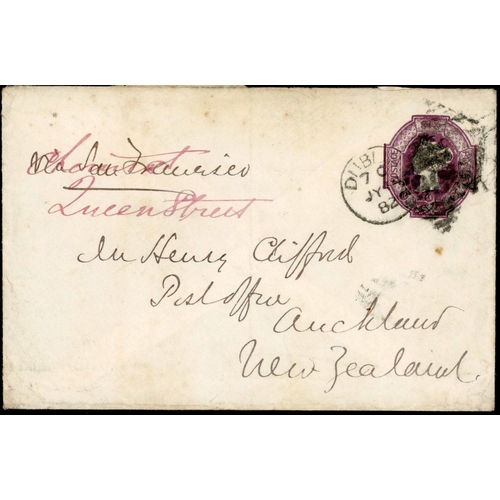 via San Francisco
Queen Street
Mr Henry Clifford
Post Office
Auckland
New Zealand.
DUBL
7
JY
82